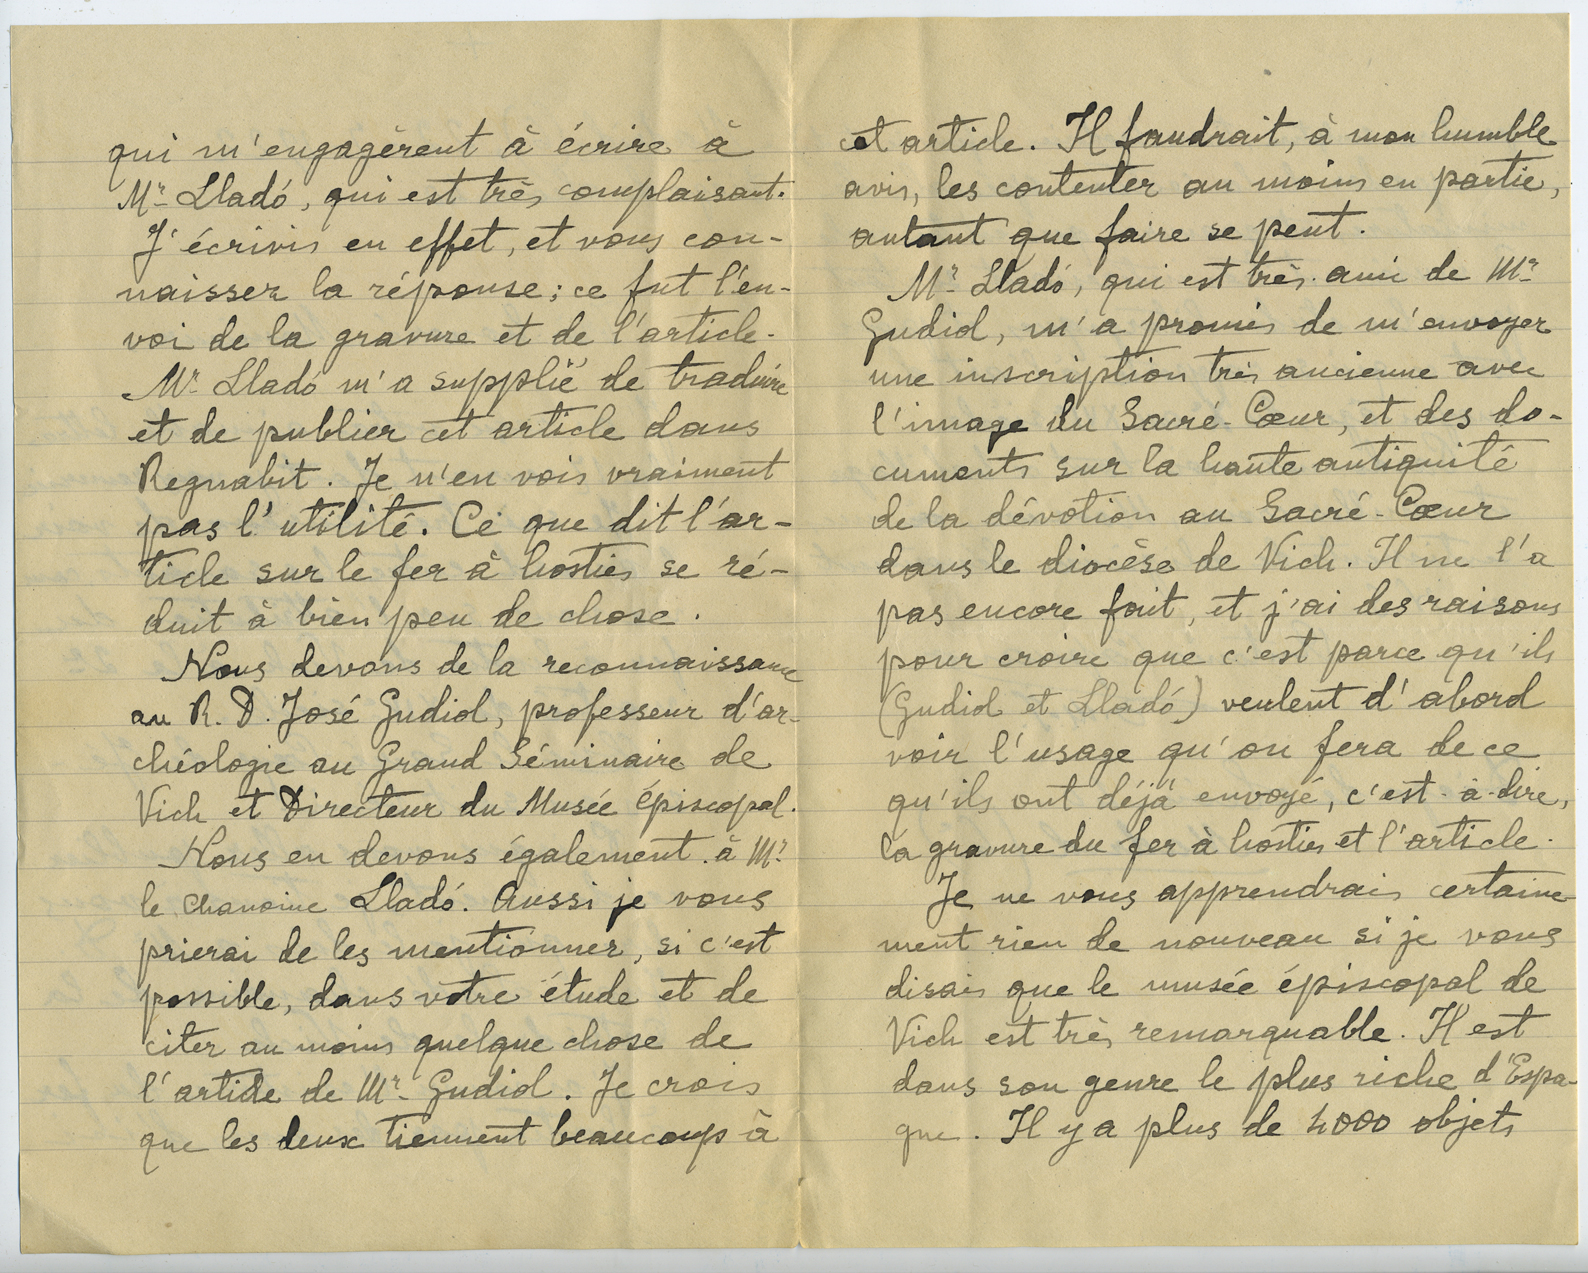 qui m'engagèrent à écrire à
Mr Lladó, qui est très complaisant.
J'écrivis en effet, et vous con-
naissez la réponse; ce fut l'en-
voi de la gravure et de l'article.
Mr Lladó m'a supplié de traduire
et de publier cet article dans
Regnabit. Je n'en vois vraiment
pas l'utilité. Ce que dit l'ar-
ticle sur le fer à hosties se ré-
duit à bien peu de chose.
Nous devons de la reconnaissance
au R. D. José Gudiol, professeur d'ar-
chéologie au Grand Séminaire de
Vich et Directeur du Musée épiscopal.
Nous en devons également à Mr
le chanoine Lladó. Aussi je vous
prierai de les mentionner, si c'est
possible, dans votre étude et de
citer au moins quelque chose de
l'article de Mr Gudiol. Je crois
que les deux tiennent beaucoup à
cet article. Il faudrait, à mon humble
avis, les contenter au moins en partie,
autant que faire se peut.
Mr Lladó, qui est très ami de Mr
Gudiol, m'a promis de m'envoyer
une inscription très ancienne avec
l'image du Sacré-Cœur, et des do-
cuments sur la haute antiquité
de la dévotion au Sacré-Cœur
dans le diocèse de Vich. Il ne l'a
pas encore fait, et j'ai des raisons
pour croire que c'est parce qu'ils
(Gudiol et Lladó) veulent d'abord
voir l'usage qu'on fera de ce
qu'ils ont déjà envoyé, c'est-à-dire,
la gravure du fer à hosties et l'article.
Je ne vous apprendrais certaine-
ment rien de nouveau si je vous
disais que le musée épiscopal de
Vich est très remarquable. Il est
dans son genre le plus riche d'Espa-
gne. Il y a plus de 4000 objets